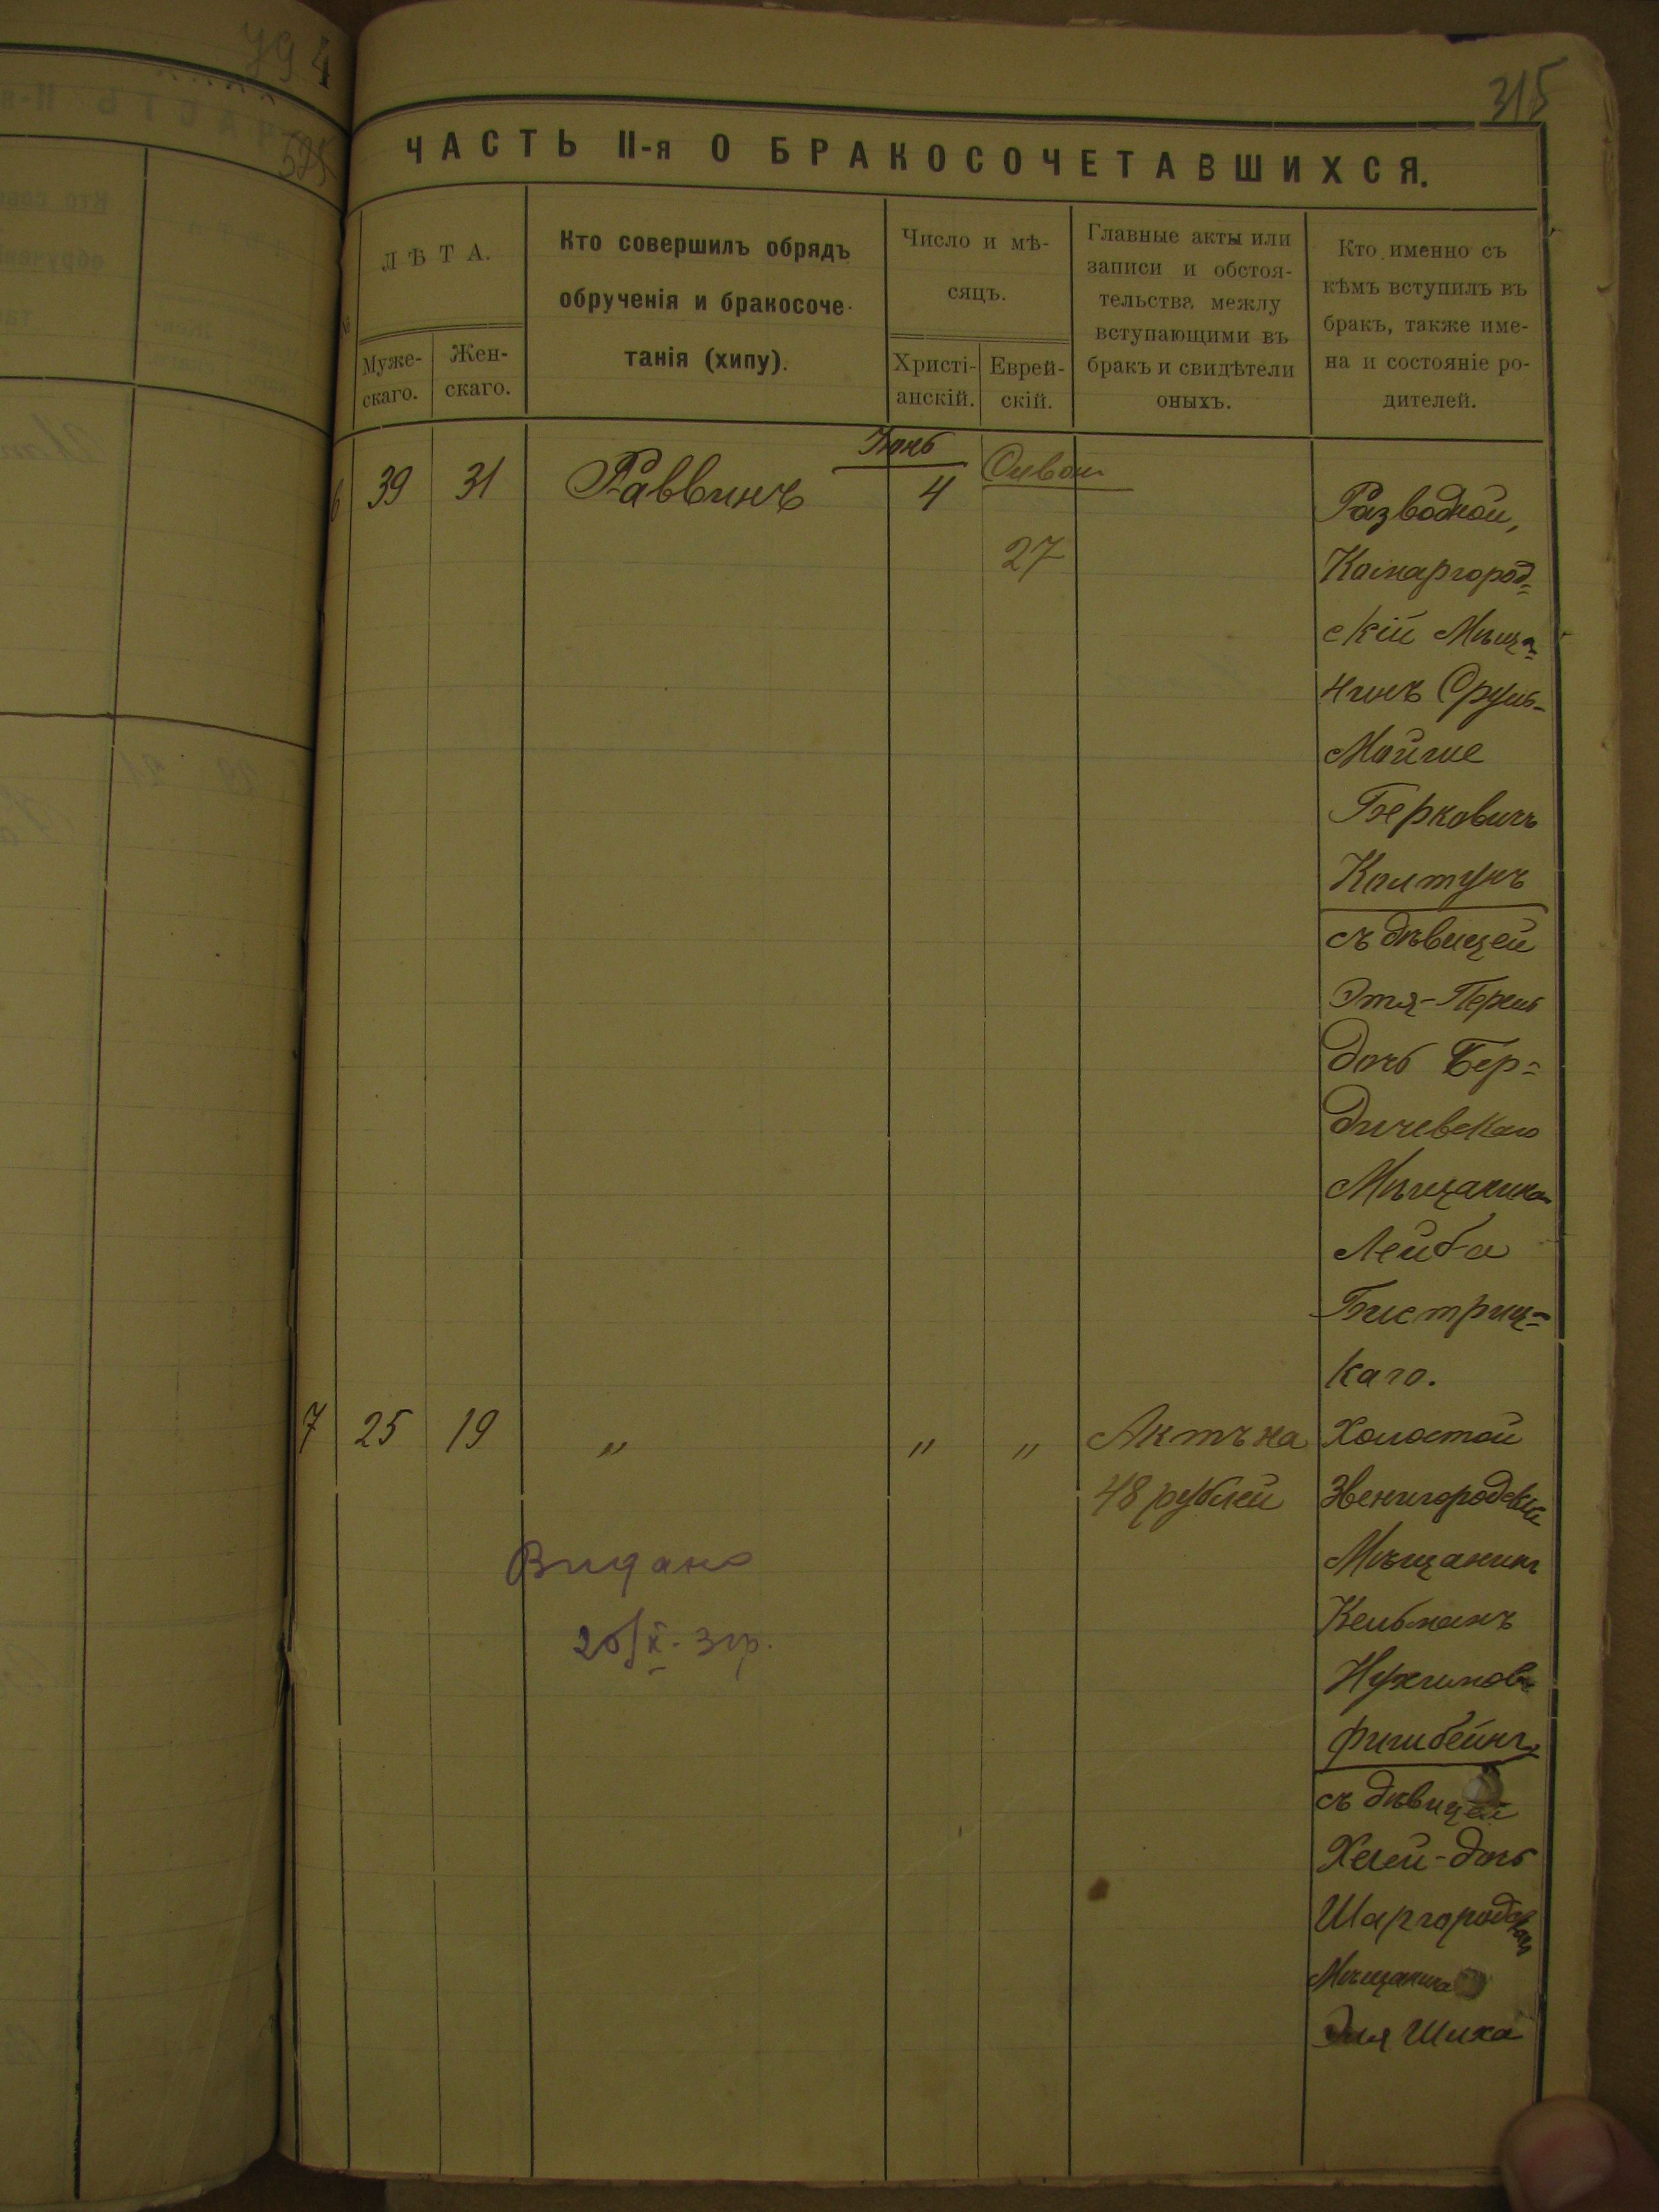 315
ЧАСТЬ II-я О БРАКОСОЧЕТАВШИХСЯ.
ЛѢТА.
Муже-
скаго.
Жен-
скаго.
Кто совершилъ обрядъ
обрученія и бракосоче-
танія (хипу).
Число и мѣ-
сяцъ.
Христі-
анскій.
Еврей-
скій.
Главные акты или
записи и обстоя-
тельства между
вступающими въ
бракъ и свидѣтели
оныхъ.
Кто именно съ
кѣмъ вступилъ въ
бракъ, также име-
на и состояніе ро-
дителей.
6 39 31 Раввинъ Іюнь 4 Сиван 27
Разводной,
скій Мѣща-
нинъ Сруль-
Мойше
Берковичъ
Колтунъ
съ дѣвицей
Этя-Перль
дочь Бер-
дичевскаго
Мѣщанина
Лейба
Бистриц-
каго.
7 25 19 " " " Актъ на
48 рублей
Видано
Холостой
Звенигородскій
Мѣщанинъ
Кельманъ
Нухимовъ
Фишбейнъ
съ дѣвицей
Хелей-дочь
Шаргородскаго
Мѣщанина
Эля Шиха